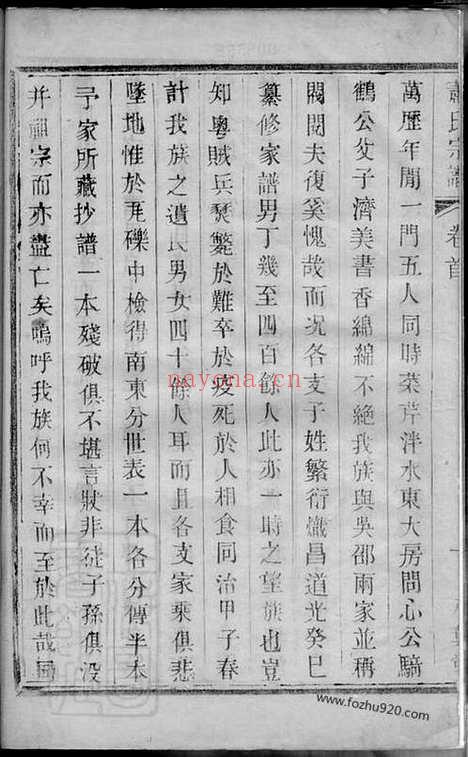 氏宗譜 卷首
萬歷年間一門五人同時菜芹泮水東大房問心公驕
鶴公父子濟美書香綿綿不絕我族與吳邵兩家並稱
閥閱夫復奚愧哉而况各支子姓繁衍熾昌道光癸巳
纂修家譜男丁幾至四百餘人此亦一時之望族也豈
知粵賊兵燹斃於難卒於疫死於人相食同治甲子春
計我族之遺民男女四十餘人耳而且各支家乘俱悲
墜地惟於瓦礫中檢得南東分世表一本各分傳半本
予家所藏抄譜一本殘破俱不堪言狀非徒子孫俱沒
并祖宗而亦盡亡矣嗚呼我族何不幸而至於此哉
nayona.cn
www.fozhu920.com